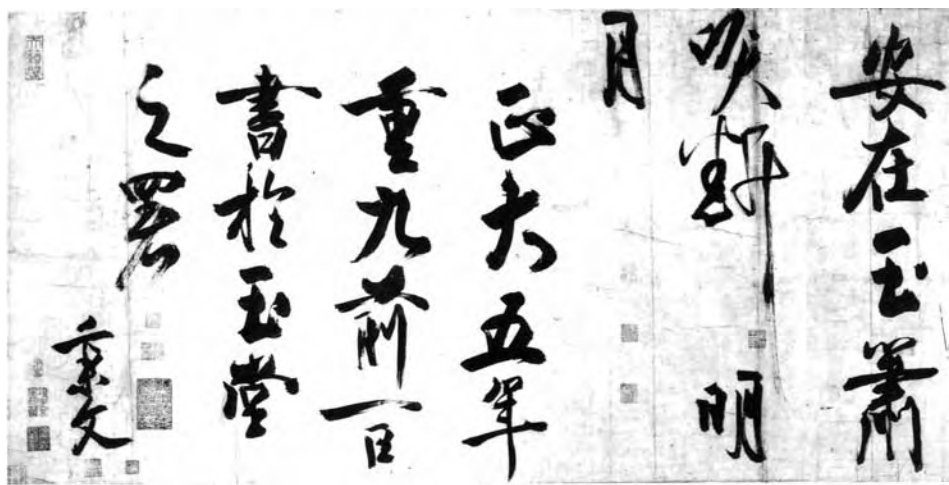 安在玉簫
吹斷明
月
正大五年
重九前一日
書於玉堂
之署
秉文